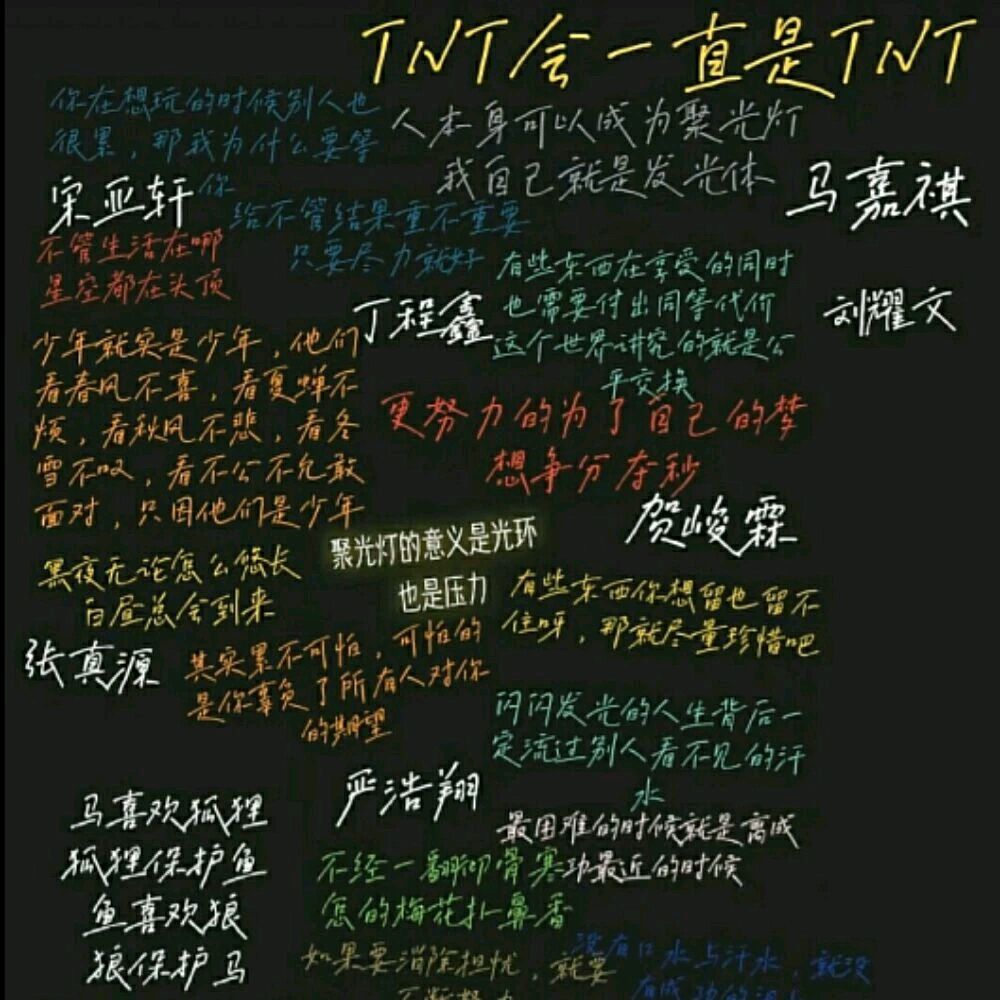 TNT会一直是TNT
你在想玩的时候别人也
很累，那我为什么要等
你
人本身可以成为聚光灯
我自己就是发光体
宋亚轩
马嘉祺
给不管结果重不重要
只要尽力就好
不管生活在哪
星空都在头顶
有些东西在享受的同时
也需要付出同等代价
这个世界讲究的就是公
平交换
丁程鑫
刘耀文
少年就实是少年，他们
看春风不喜，看夏蝉不
烦，看秋风不悲，看冬
雪不叹，看不公不允敢
面对，只因他们是少年
更努力的为了自己的梦
想争分夺秒
贺峻霖
聚光灯的意义是光环
也是压力
黑夜无论怎么悠长
白昼总会到来
有些东西你想留也留不
住呀，那就尽量珍惜吧
张真源
其实累不可怕，可怕的
是你辜负了所有人对你
的期望
闪闪发光的人生背后一
定流过别人看不见的汗
水
严浩翔
最困难的时候就是离成
功最近的时候
马喜欢狐狸
狐狸保护鱼
鱼喜欢狼
狼保护马
不经一翻彻骨寒
怎的梅花扑鼻香
如果要消除担忧，就要
没有口水与汗水，就没